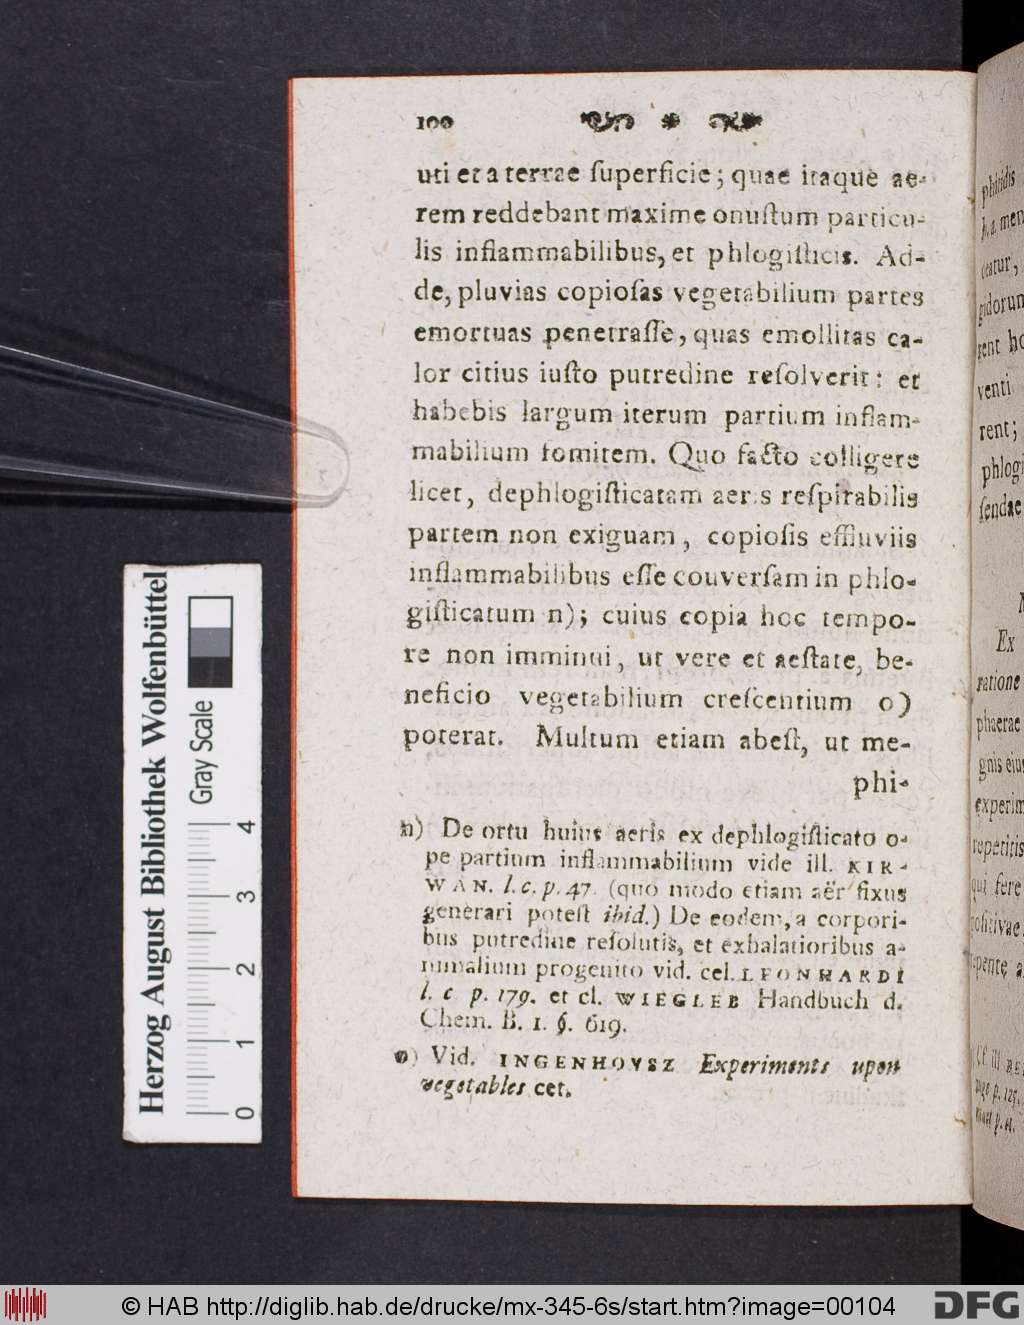 100
uti et a terrae ſuperficie; quae itaque ae-
rem reddebant maxime onuſtum particu-
lis inflammabilibus, et phlogiſticis. Ad-
de, pluvias copioſas vegetabilium partes
emortuas penetraſſe, quas emollitas ca-
lor citius iuſto putredine reſolverit: et
habebis largum iterum partium inflam-
mabilium fomitem. Quo facto colligere
licet, dephlogiſticatam aeris reſpirabilis
partem non exiguam, copioſis effluviis
inflammabilibus eſſe couverſam in phlo-
giſticatum n); cuius copia hoc tempo-
re non imminui, ut vere et aeſtate, be-
neficio vegetabilium creſcentium o)
poterat. Multum etiam abeſt, ut me-
phi-
n) De ortu huius aeris ex dephlogiſticato o-
pe partium inflammabilium vide ill. KIR-
WAN. l. c. p. 47. (quo modo etiam aër fixus
generari poteſt ibid.) De eodem, a corpori-
bus putredine reſolutis, et exhalatioribus a-
nimalium progenito vid. cel. LEONHARDI
l. c p. 179. et cl. WIEGLEB Handbuch d.
Chem. B. 1. §. 619.
o) Vid. INGENHOVSZ Experiments upon
vegetables cet.
phitidis
h. a. men
ceatur,
gidorum
rent ho
venti
rent;
phlogi
ſendae
Ex
ratione
phaerae
gnis eius
experim
repetitis
qui fere
poſitivae
Herzog August Bibliothek Wolfenbüttel
Gray Scale
0 1 2 3 4
© HAB http://diglib.hab.de/drucke/mx-345-6s/start.htm?image=00104
DFG